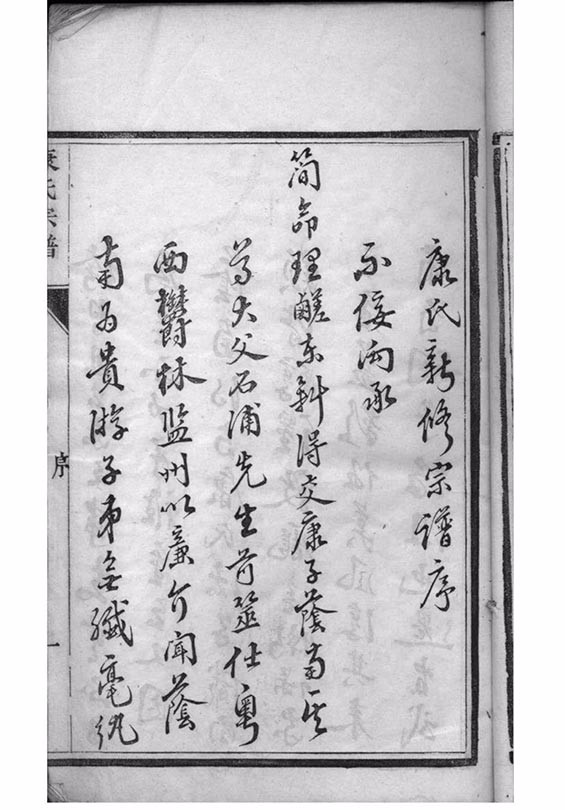 康氏新修宗譜序
不佞両承
簡命理鹺東得交康子蔭南其
尊大父石浦先生前筮仕粵
西欝林监州以廉介聞蔭
南為貴游子弟無纖毫紈
康氏宗譜
序
一